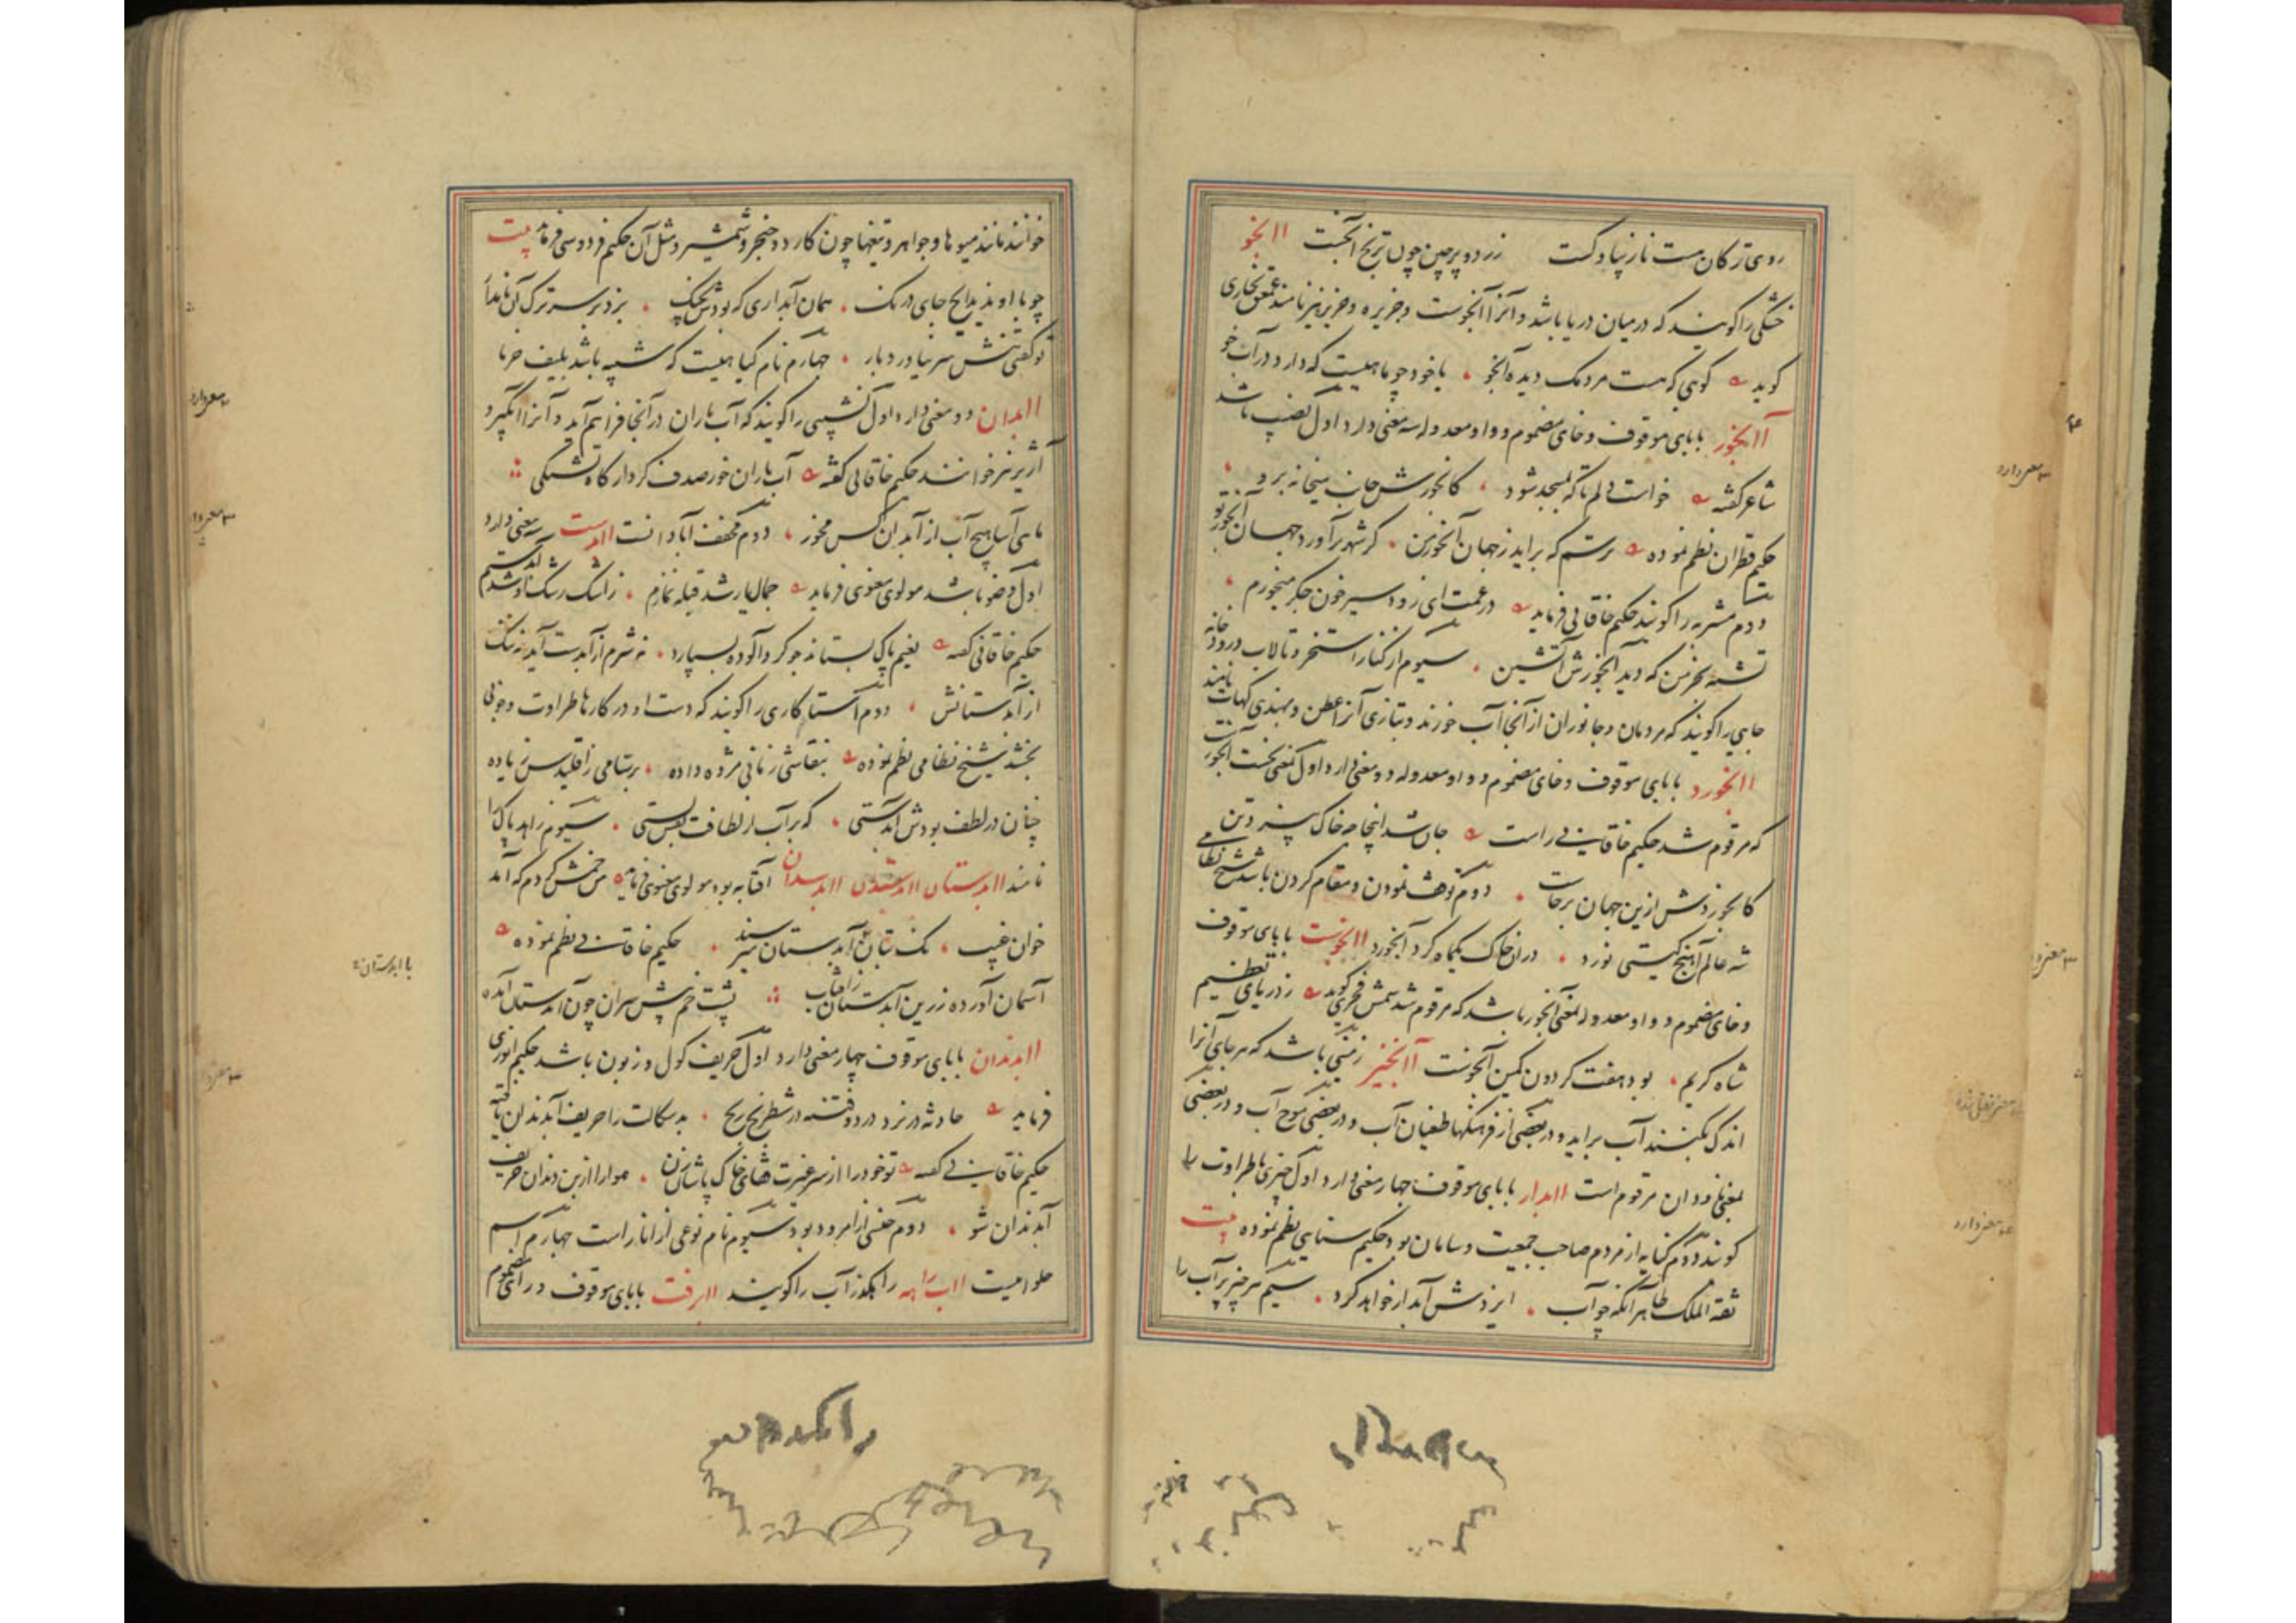 روی ترکان هست نازیبا و گست زرد و پرچین چون ترنج آبخست آبخو
خشکی را گویند که در میان دریا باشد و آنرا آبخوست و جزیره و جزیر نیز نامند عمعق بخاری
گوید کوهی که هست مردمک دیده آبخو یا خود چو ماهیست که دارد در آب خو
آبخور با بای موقوف و خای مضموم و واو معدوله سه معنی دارد اول نصیب باشد
شاعر گفته خواست دلم تا که بمسجد شود کابخورش جانب میخانه برد
حکیم قطران نظم نموده ترسم که براید ز جهان آبخور من کز شهر برآورد جهان آبخور تو
دوم مشربه را گویند حکیم خاقانی فرماید در غمت ای زود سیر خون جگر میخورم
تشنه بجز من که دید آبخورش آتشین سیوم از کنار استخر و تالاب و رودخانه
جایی را گویند که مردمان و جانوران از آنجا آب خورند و بتازی آنرا عطن و بهندی گهات نامند
آبخورد با بای موقوف و خای مضموم و واو معدوله دو معنی دارد اول بمعنی نخست آبخور است
که مرقوم شد حکیم خاقانی راست جان شد اینجا چه خاک بیزد تن
کابخوردش ازین جهان برخاست دوم توقف نمودن و مقام کردن باشد شیخ نظامی
شه عالم آهنج گیتی نورد در آن خاک یکماه کرد آبخورد آبخوست با بای موقوف
و خای مضموم و واو معدوله بمعنی آبخو باشد که مرقوم شد شمس فخری گوید ز دریای تعظیم
شاه کریم بود هفت گردون کمین آبخوست آبخیز زمینی باشد که هر جای آنرا
اندک بکنند آب براید و در بعضی از فرهنگها طغیان آب و در بعضی موج آب و در بعضی
بمعنی ناودان مرقوم است آبدار با بای موقوف چهار معنی دارد اول چیزی با طراوت را
گویند دوم کنایه از مردم صاحب جمعیت و سامان بود حکیم سنایی نظم نموده بیت
ثقة الملک طاهر آنکه چو آب ایزدش آبدار خواهد کرد سیم هر چیز پر آب را
سه معنی دارد
خوانند مانند میوها و جواهر و تیغها چون کارد و خنجر و شمشیر و مثل آن حکیم فردوسی فرماید بیت
چو با او ندید ایچ جای درنگ همان آبداری که بودش بچنگ بزد بر سر ترک آن نامدار
تو گفتی تنش سر نیاورد بار چهارم نام گیاهیست که شبیه باشد بلیف خرما
آبدان دو معنی دارد اول نشیبی را گویند که آب باران در آنجا فراهم آید و آنرا آبگیر و
آژیر نیز خوانند حکیم خاقانی گفته آب باران خور صدف کردار گاه تشنگی
ماهی آسا هیچ آب از آبدان کس مخور دوم مخفف آبادانست آبدست سه معنی دارد
اول وضو باشد مولوی معنوی فرماید جمال یار شد قبله نمازم ز اشک رشک او شد آبدستم
حکیم خاقانی گفته نعیم پاک بستاند چو کرد آلوده بسپارد نه شرم از آبدست آید نه ننگ
از آبدستانش دوم استاد کاری را گویند که دست او در کارها طراوت و خوبی
بخشد شیخ نظامی نظم نموده بنقاشی ز مانی مژده داده برسامی ز اقلیدس زیاده
چنان در لطف بودش آبدستی که بر آب از لطافت نقش بستی سیوم زاهد پاک را
نامند آبدستان آبدستدان آبدسدان آفتابه بود مولوی معنوی فرماید من خمش کردم که آمد
خوان غیب نک بتان با آبدستان میرسند حکیم خاقانی نظم نموده
آسمان آورده زرین آبدستان ز آفتاب پشت خم پیش سران چون آبدستان آمده
آبدندان با بای موقوف چهار معنی دارد اول حریف گول و زبون باشد حکیم انوری
فرماید حادثه در نرد درد و فتنه در شطرنج رنج بدسگالت را حریف آبدندان یافته
حکیم خاقانی گفته تو خود را از سر غیرت قفای خاک پاشان زن هوا را ازبن دندان حریف
آبدندان شو دوم جنسی از امرود بود سیوم نام نوعی از انار است چهارم اسم
حلوائیست آب راهه راهگذر آب را گویند آبرفت با بای موقوف و رای مضموم
سه معنی دارد
با آبدستان